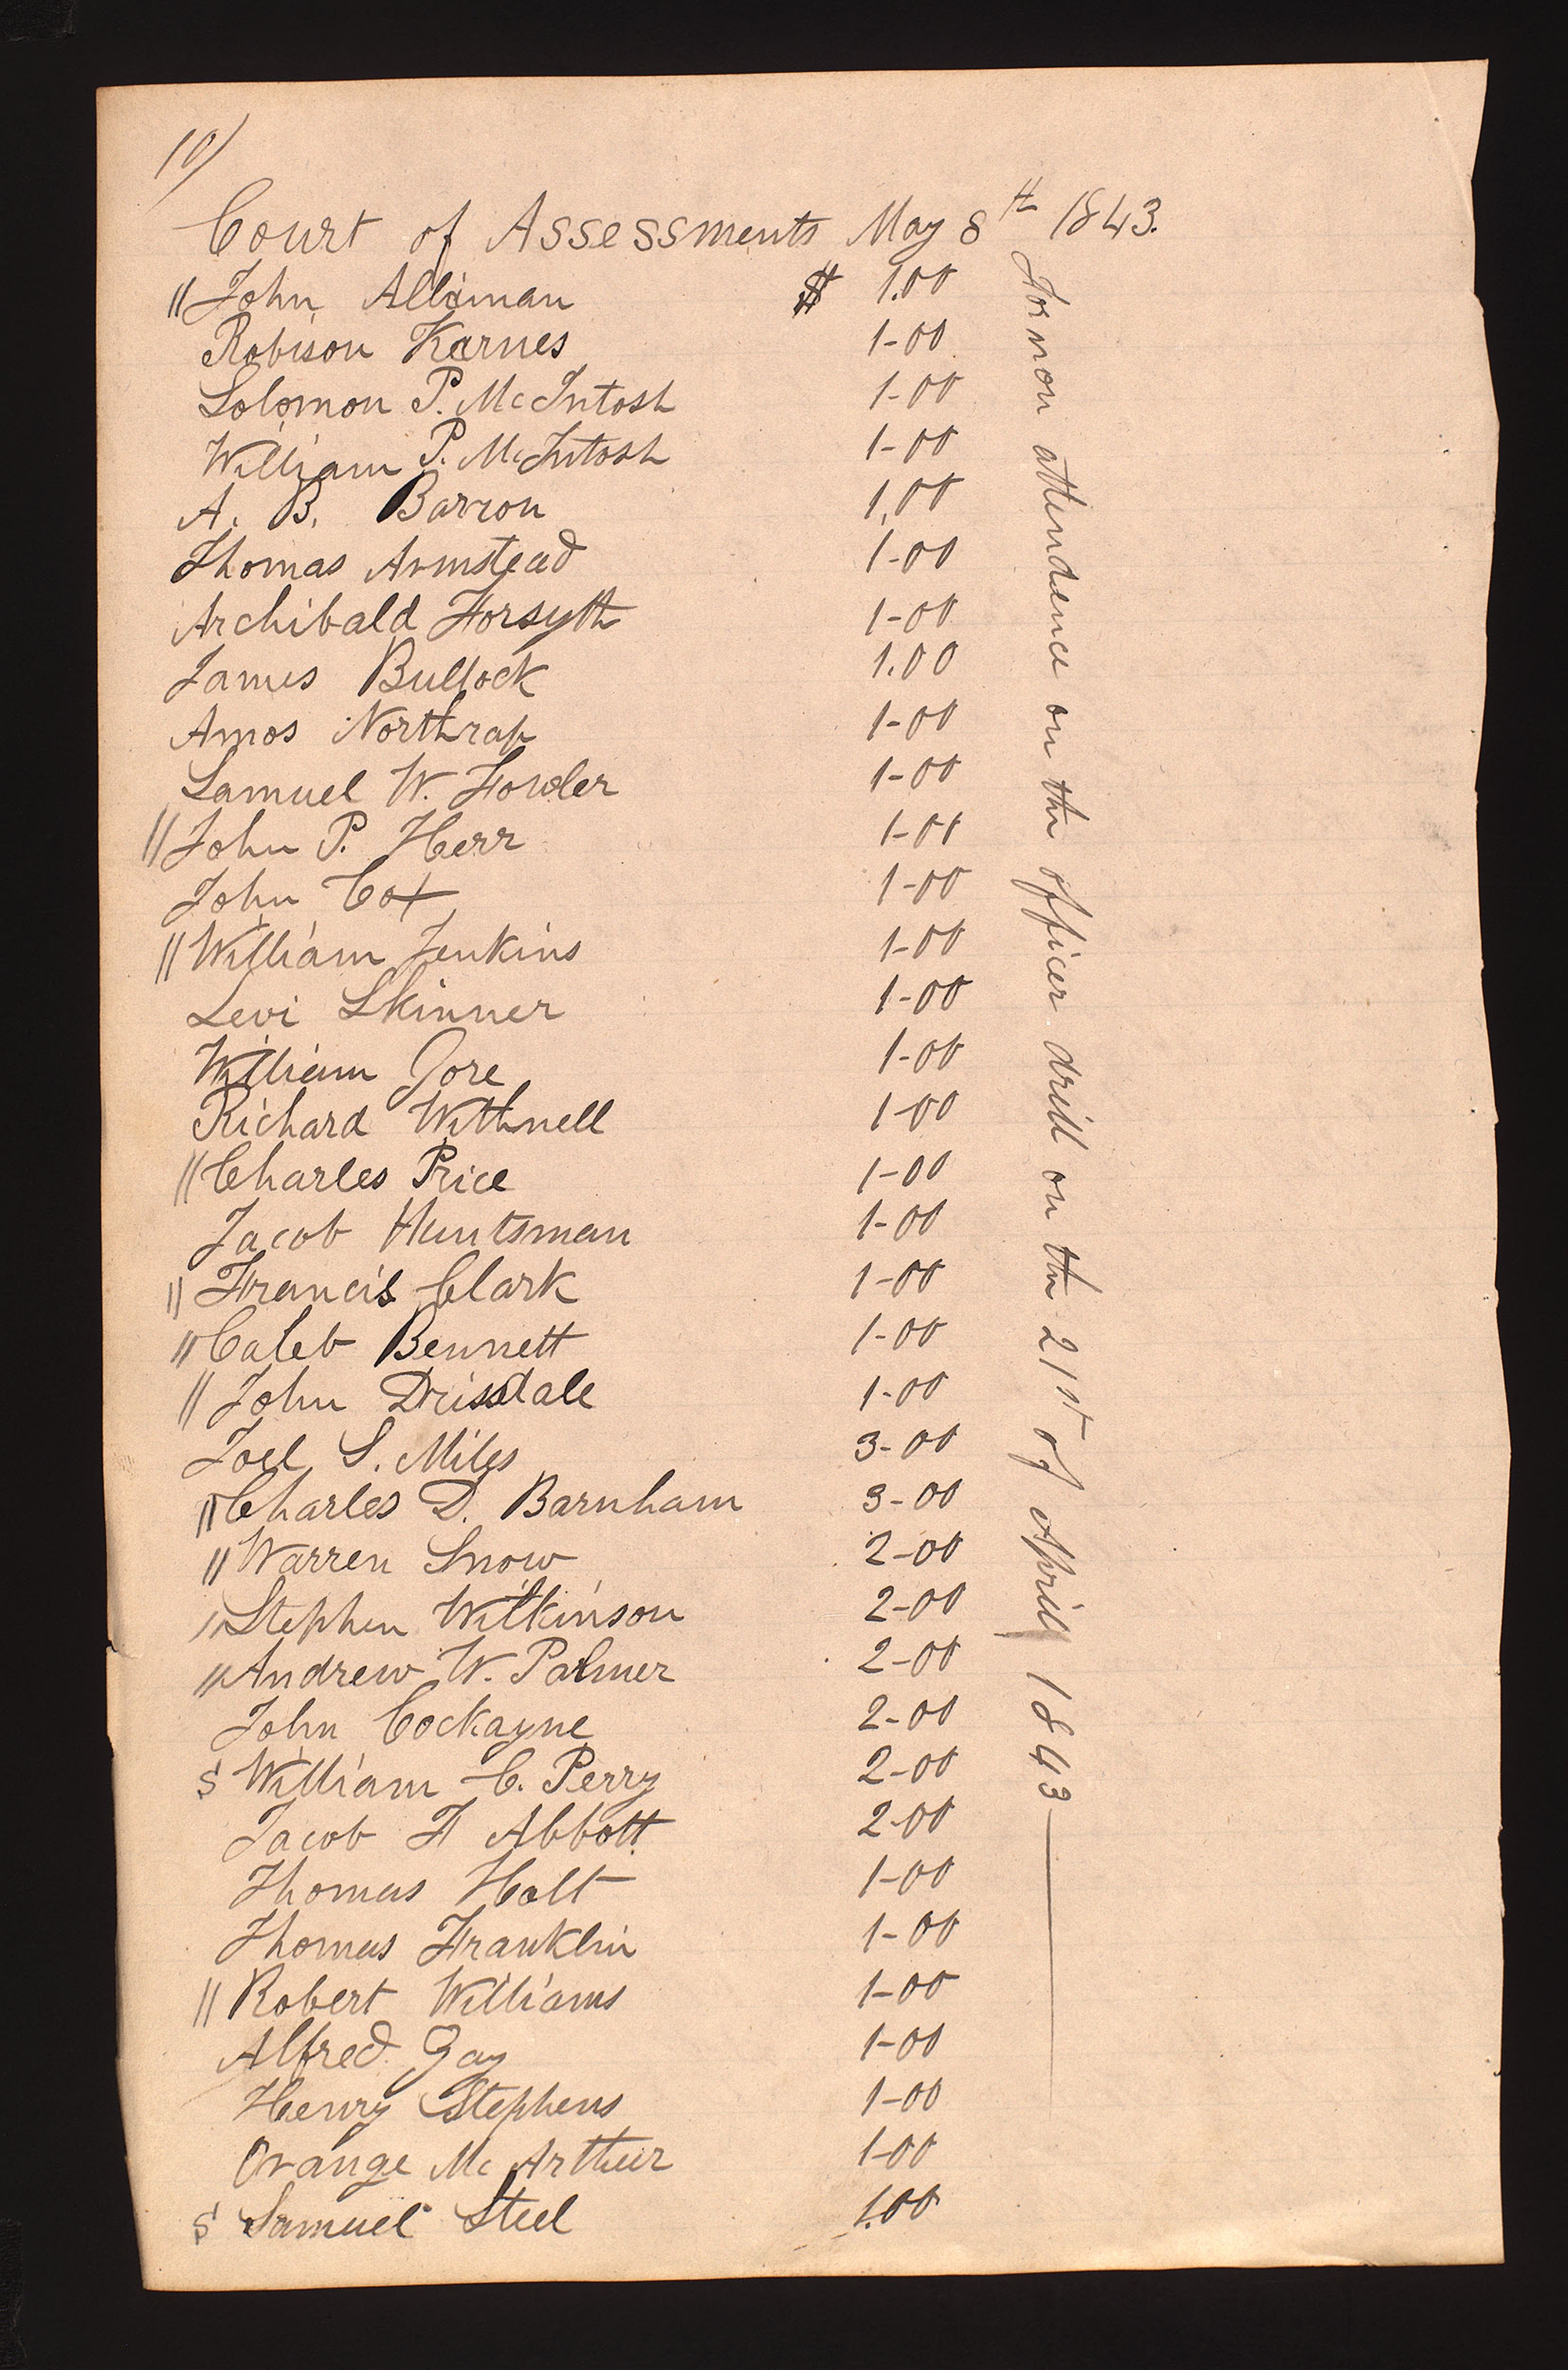 10/
Court of Assessments May 8th 1843.
// John Alliman $ 1.00
Robison Karnes 1-00
Solomon P. McIntosh 1-00
William P. McIntosh 1-00
A. B. Barron 1.00
Thomas Armstead 1-00
Archibald Forsyth 1-00
James Bullock 1.00
Amos Northrap 1-00
Samuel W. Fowler 1-00
// John P. Herr 1-00
John Cox 1-00
// William Jenkins 1-00
Levi Skinner 1-00
William Gore 1-00
Richard Withnell 1-00
// Charles Price 1-00
Jacob Huntsman 1-00
// Francis Clark 1-00
// Caleb Bennett 1-00
// John Drissdale 1-00
Joel S. Miles 3-00
// Charles D. Barnham 3-00
// Warren Snow 2-00
// Stephen Wilkinson 2-00
// Andrew W. Palmer 2-00
John Cockayne 2-00
S William C. Perry 2-00
Jacob F Abbott. 2-00
Thomas Holt 1-00
Thomas Franklin 1-00
// Robert Williams 1-00
Alfred Gay 1-00
Henry Stephens 1-00
Orange McArthur 1-00
S Samuel Steel 1.00
For non attendence on the officer drill on the 21st of Aprill 1843